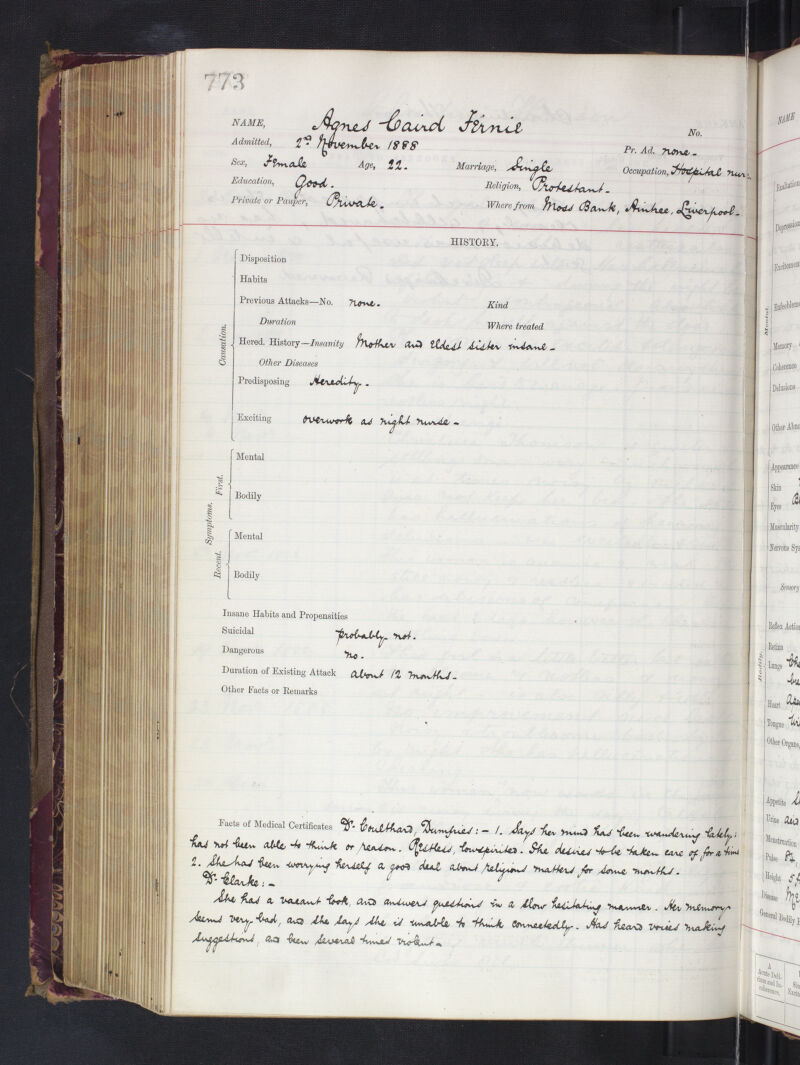 773
NAME, Agnes Caird Fernie No.
Admitted, 2nd November 1888 Pr. Ad. none.
Sex, Female Age, 22. Marriage, Single Occupation, Hospital nur
Education, Good. Religion, Protestant.
Private or Pauper, Private. Where from Moss Bank, Aintree, Liverpool.
HISTORY.
Causation.
Disposition
Habits
Previous Attacks—No. none. Kind
Duration Where treated
Hered. History—Insanity Mother and eldest sister insane.
Other Diseases
Predisposing Heredity.
Exciting overwork as night nurse.
Symptoms.
First.
Mental
Bodily
Recent.
Mental
Bodily
Insane Habits and Propensities
Suicidal probably not.
Dangerous no.
Duration of Existing Attack about 12 months.
Other Facts or Remarks
Facts of Medical Certificates Dr. Coulthard, Dumfries:— 1. Says her mind has been wandering lately:
has not been able to think or reason. Restless, lowspirited. She desires to be taken care of for a time
2. She has been worrying herself a good deal about religious matters for some months.
Dr. Clarke:—
She has a vacant look, and answers questions in a slow hesitating manner. Her memory
seems very bad, and she says she is unable to think connectedly. Has heard voices making
suggestions, and been several times violent.
NAME
Mental.
Exaltation
Depression
Excitement
Enfeeblem
Memory
Coherence
Delusions
Other Abno
Bodily.
Appearance
Skin
Eyes
Muscularity
Nervous Sys
Sensory
Reflex Action
Retina
Lungs
Heart
Tongue
Other Organs,
Appetite
Urine
Menstruation
Pulse
Height
Disease
General Bodily
A
Acute Deli-
rium and In-
coherence.